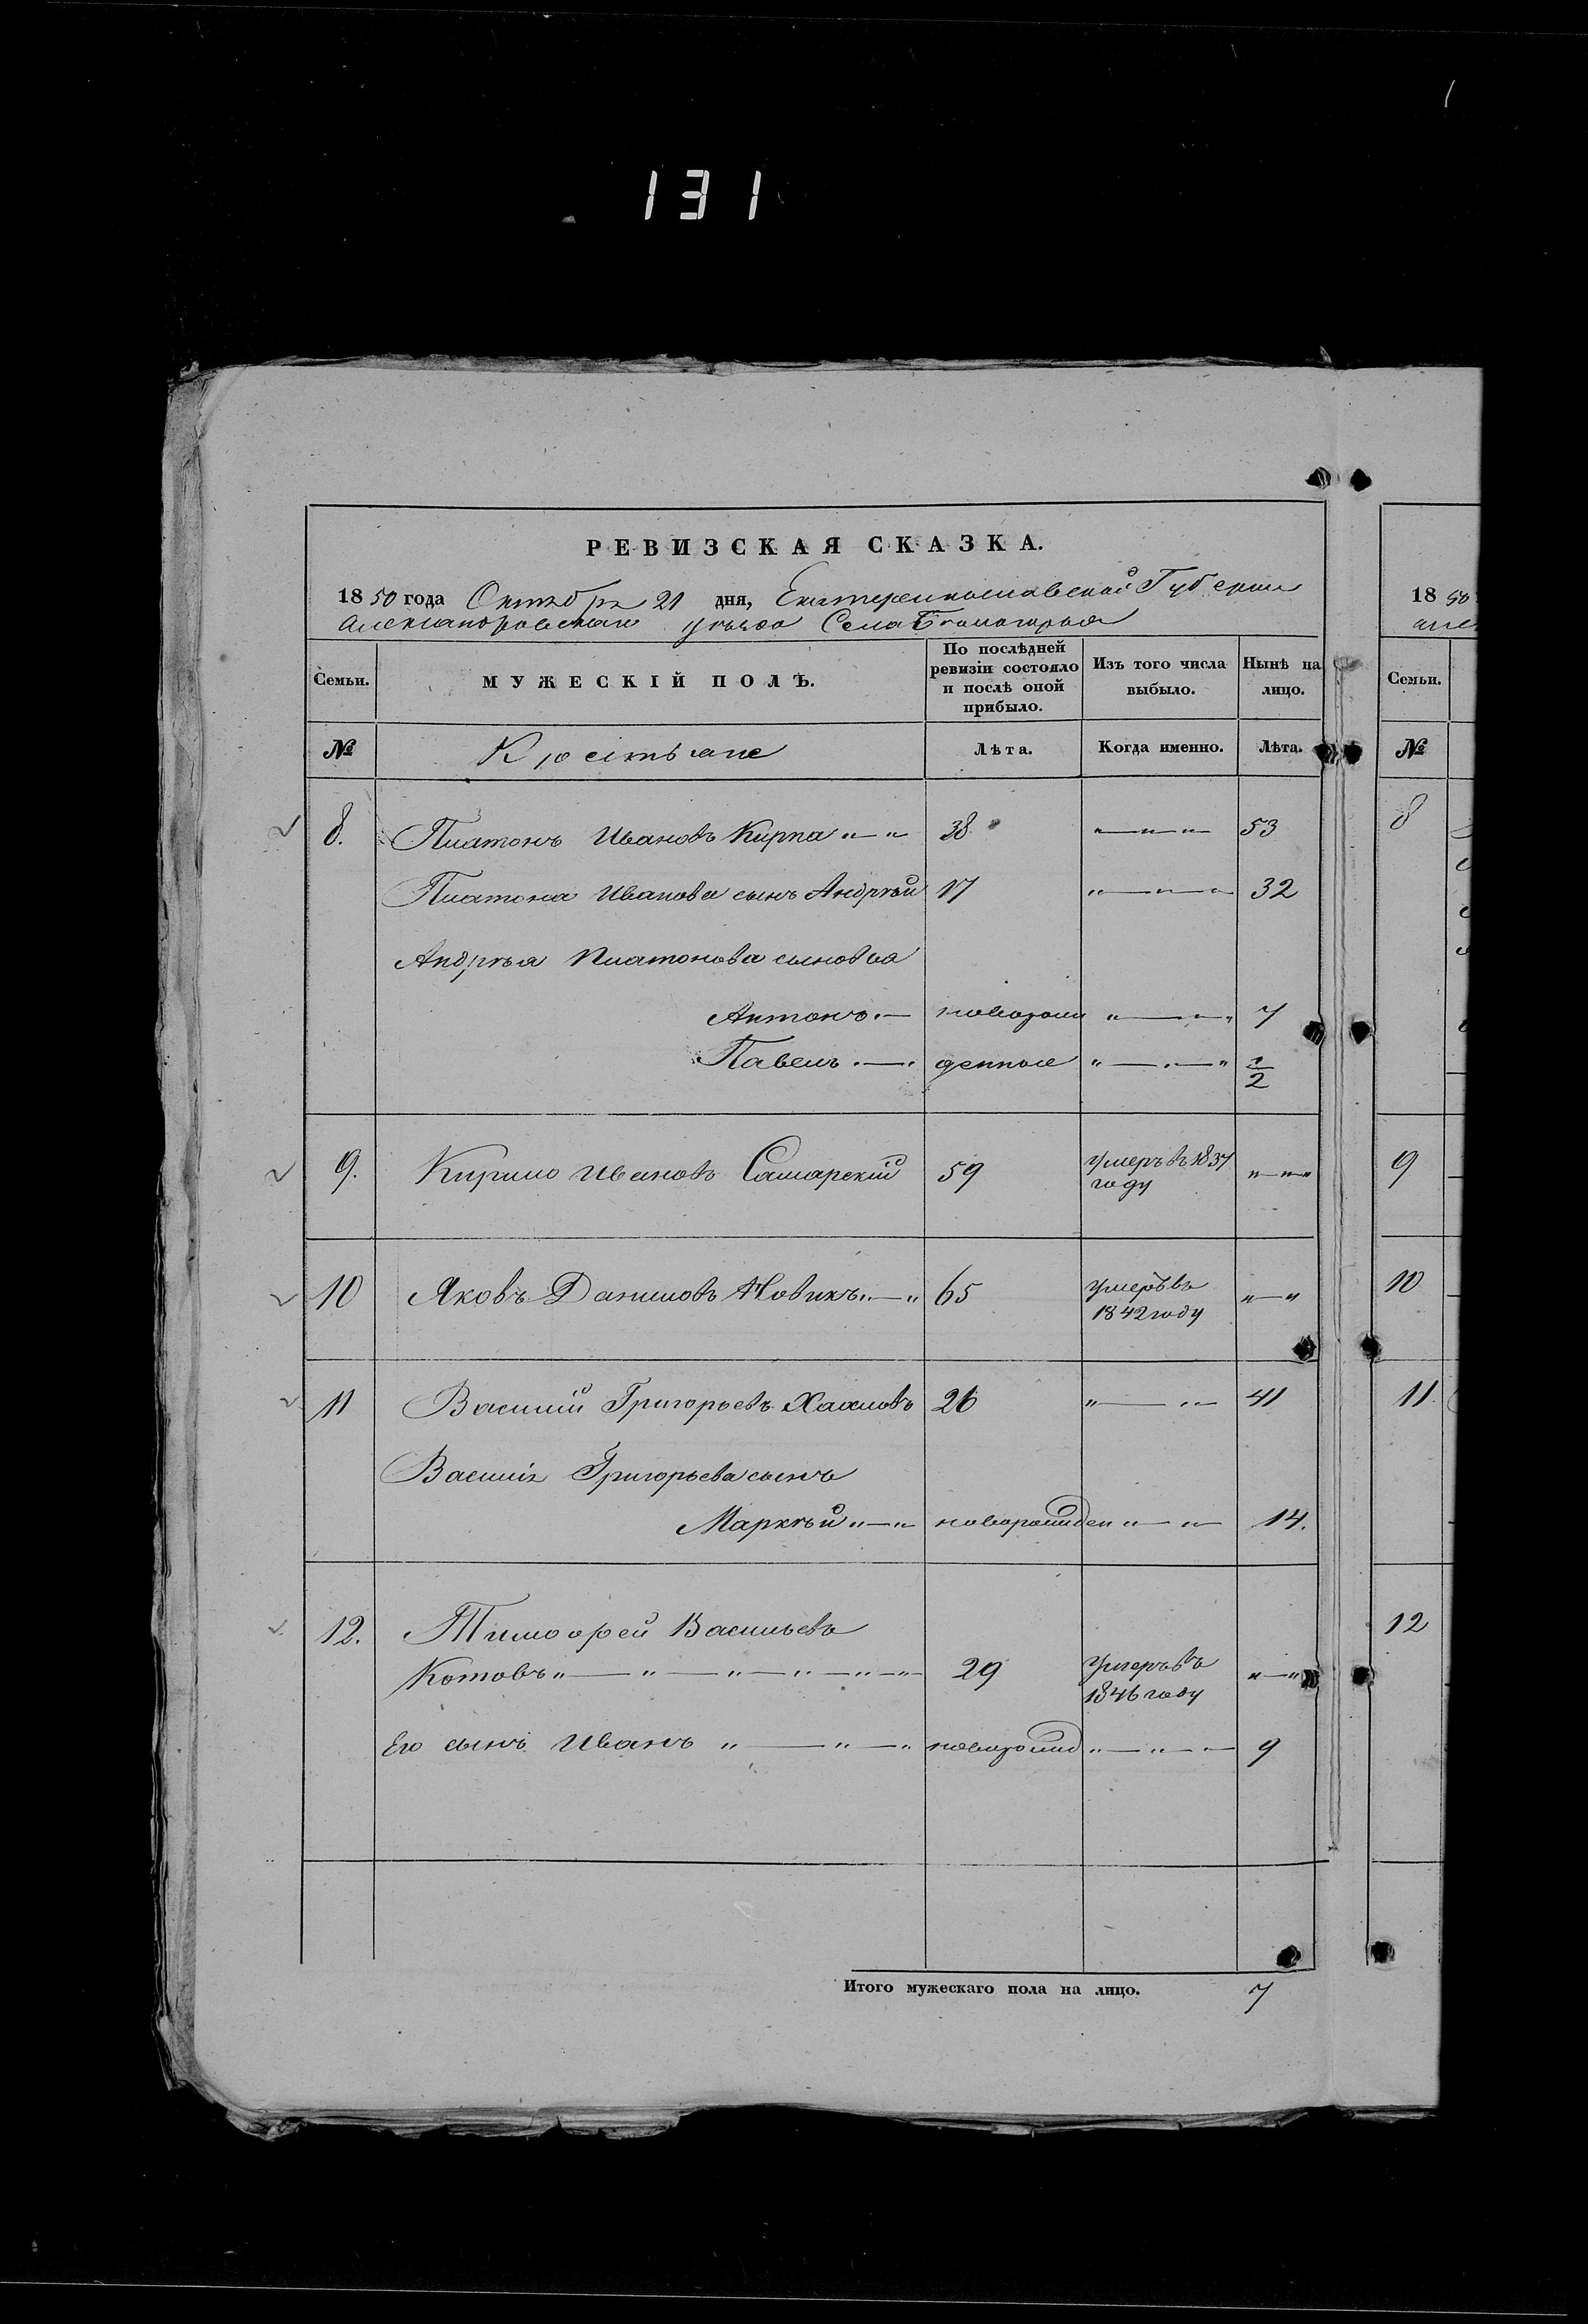 131
РЕВИЗСКАЯ СКАЗКА.
1850 года Октября 21 дня, Екатеринославской Губернии
Александровскаго уѣзда Села Бѣлогорья
Семьи. МУЖЕСКІЙ ПОЛЪ. По послѣдней ревизіи состояло и послѣ оной прибыло. Изъ того числа выбыло. Нынѣ на лицо.
№ Крестьяне Лѣта. Когда именно. Лѣта.
8. Платонъ Ивановъ Кирпа „—„ 38 „—„—„ 53
Платона Иванова сынъ Андрѣй 17 „—„—„ 32
Андрѣя Платонова сыновья
Антонъ.— новорож „—„—„ 7
Павелъ.—. денные „—.—„ 1/2
9. Кирило Ивановъ Самарскій 59 умеръ въ 1837 году „—„—„
10 Яковъ Даниловъ Новикъ „—„ 65 умеръ въ 1842 году „—„
11 Василій Григорьевъ 26 „—„— 41
Василія Григорьева сынъ
Маркѣй „—„ новорожден „—„— 14.
12. Тимофей Васильевъ
Котовъ „—„—„—„—„—„ 29 умеръ въ 1846 году „—„
Его сынъ Иванъ „—„—„ новорожд „—„—„— 9
Итого мужескаго пола на лицо. 7
18 50
Семьи.
№
8
9
10
11.
12